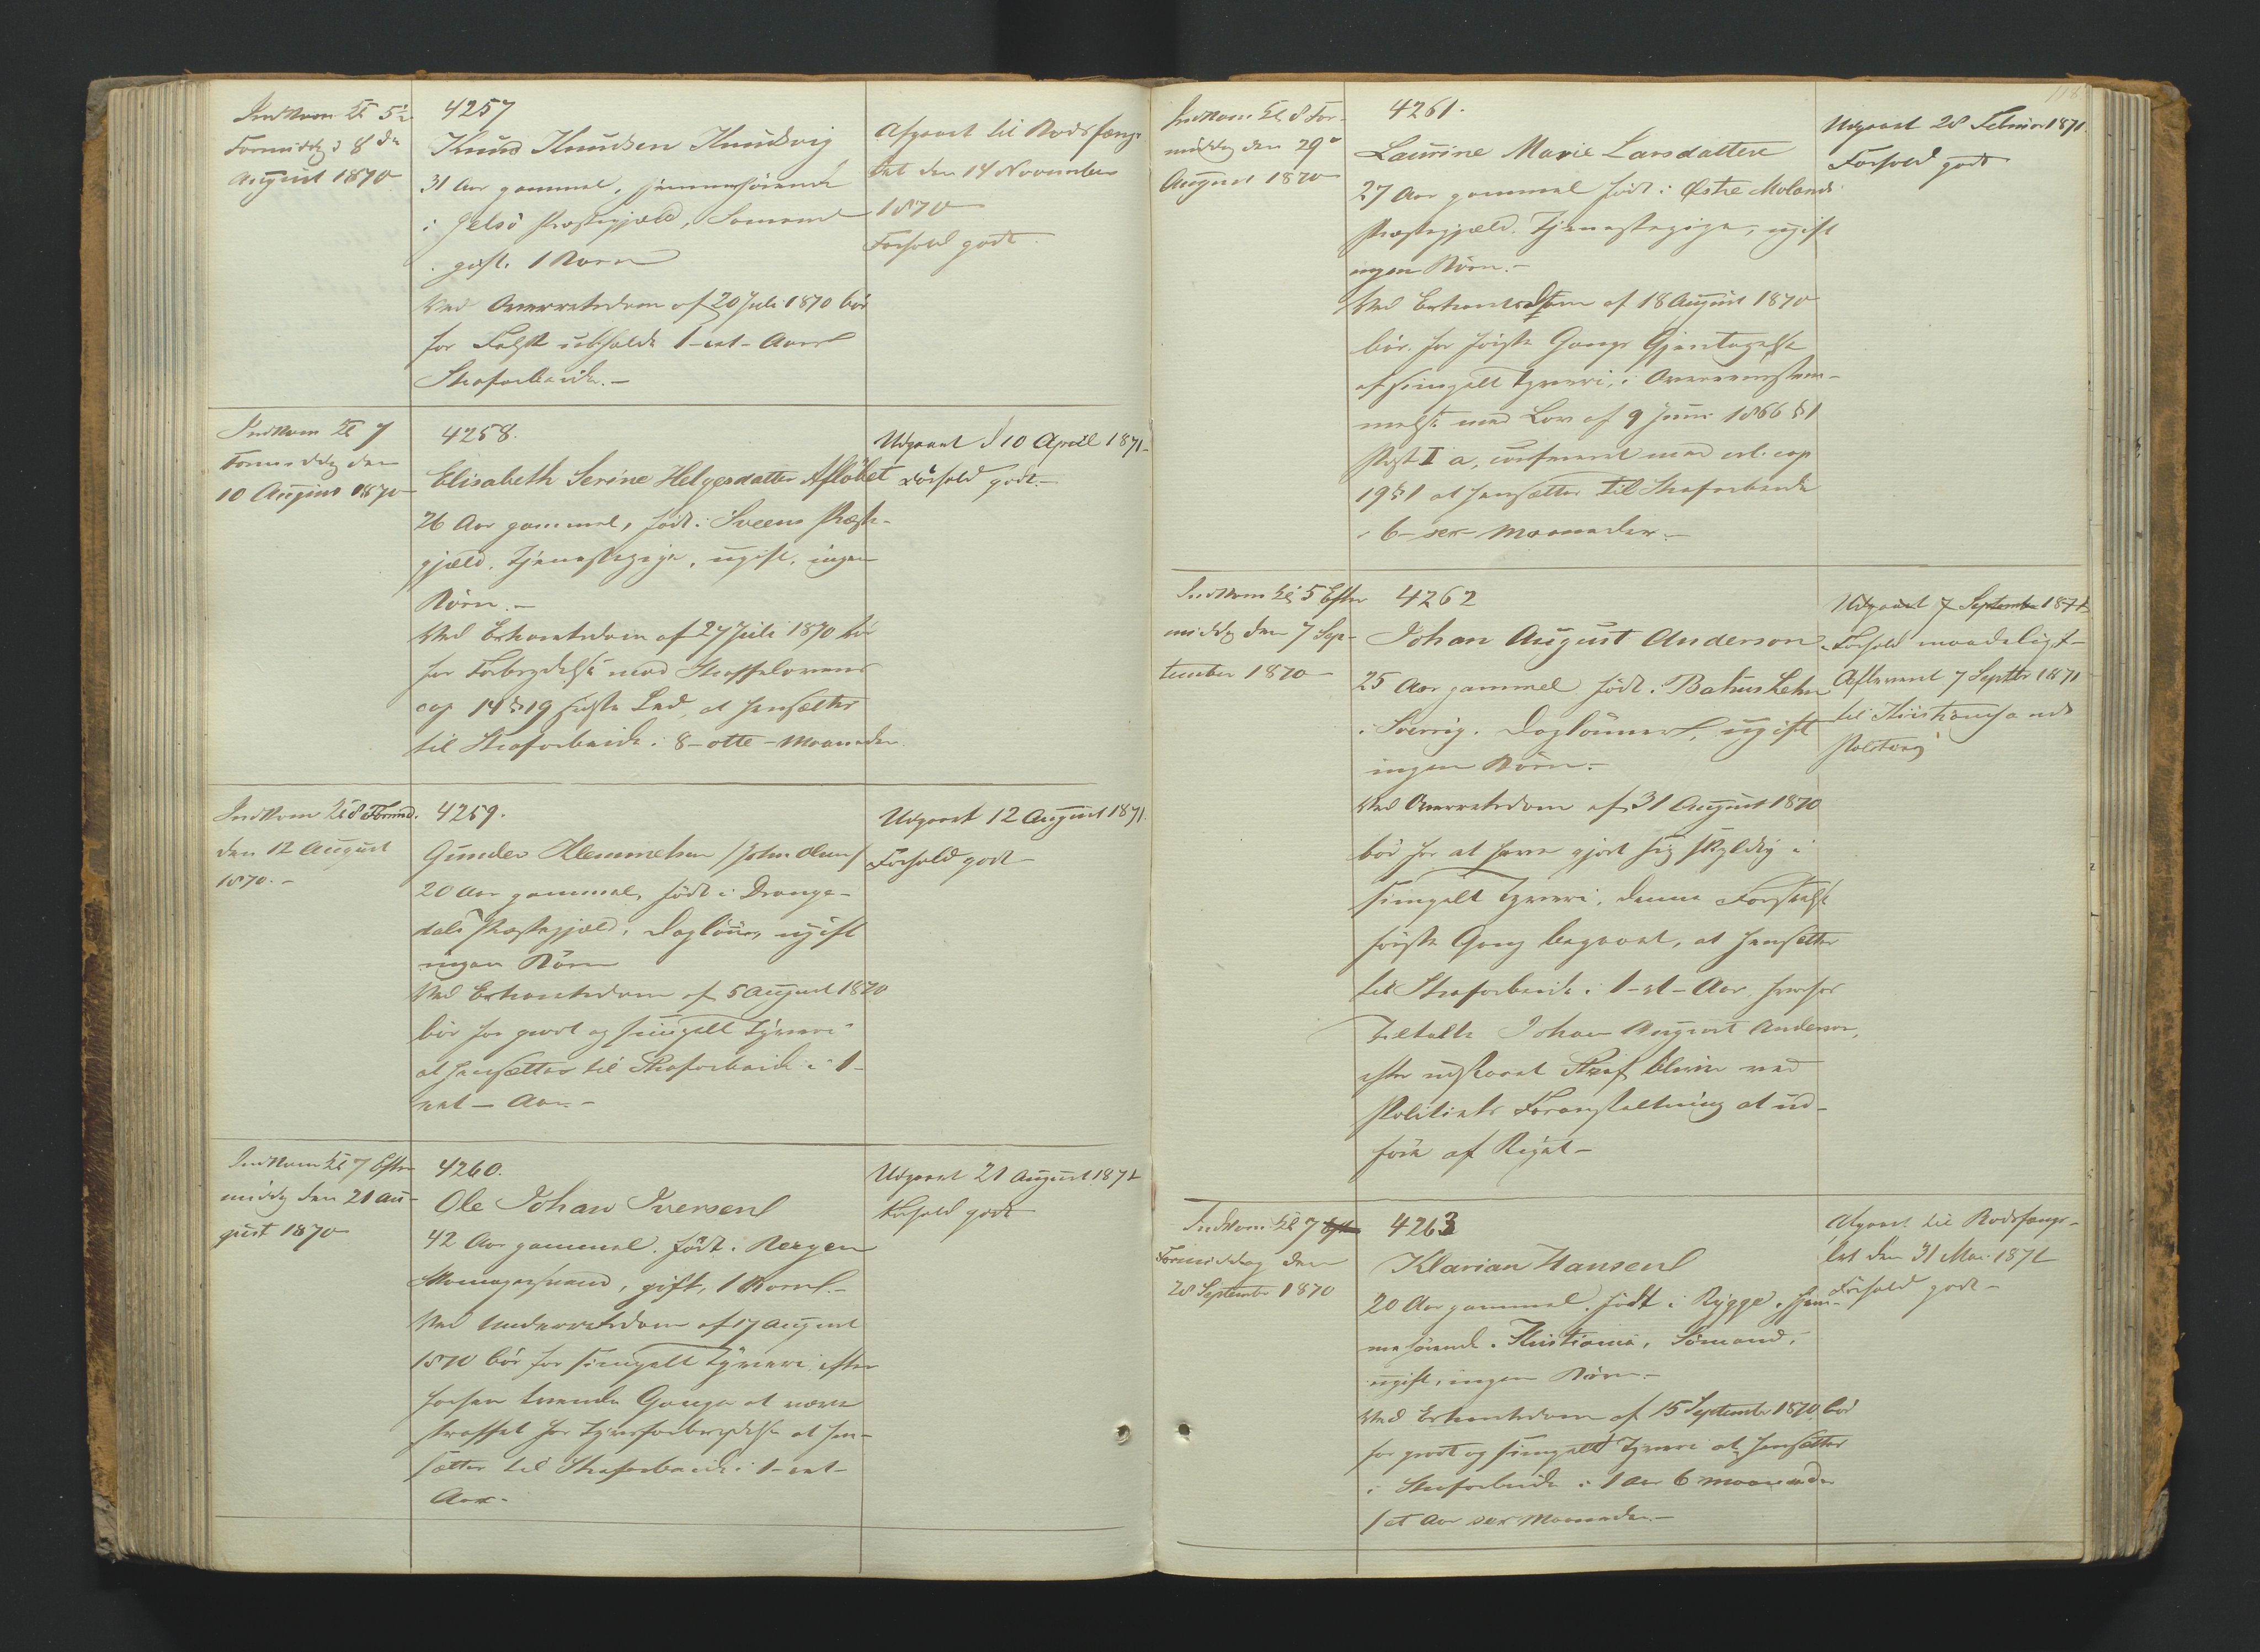 Indkom Kl 5½
Formiddag d 8de
August 1870
4257
Knud Knudsen Knudsvig
31 Aar gammel, hjemmehörende
i Jelsö Præstegjæld, Sömand
gift. 1 Barn
Ved Overretsdom af 20 Juli 1870 bör
for Falsk udholde 1-et-Aars
Strafarbeide.-
Afgaaet til Bodsfæng-
let den 14 November
1870
Forhold godt.
Indkom Kl 7
Formiddag den
10 August 1870
4258.
Elisabeth Serine Helgesdatter Aflöbet
26 Aar gammel, födt i Sveens Præste-
gjæld. Tjenestepige, ugift, ingen
Börn.-
Ved Extraretsdom af 27 Juli 1870 bör
for Forbrydelse mod Straffelovens
cap 14 § 19 sidste Led, at hensættes
til Strafarbeide i 8-otte-Maaneder.
Udgaaet d 10 April 1871.
Forhold godt.-
Indkom Kl 8 Formd.
den 12 August
1870.-
4259.
Gunder Klemmetsen /John Olsen/
20 Aar gammel, födt i Drange-
dals Præstegjæld, Daglönner, ugift
ingen Börn
Ved Extraretsdom af 5 August 1870
bör for grovt og simpelt Tyveri
at hensættes til Strafarbeide i 1-
eet-Aar.-
Udgaaet 12 August 1871.
Forhold godt-
Indkom Kl 7 Efter
middag den 21 Au-
gust 1870
4260.
Ole Johan Iversen
42 Aar gammel. födt i Bergen
gift, 1 Barn.-
Ved Underretsdom af 17 August
1870 bör for simpelt Tyveri efter
forhen tvende Gange at være
straffet for Tyvsforbrydelse at hen-
sættes til Strafarbeide i 1-eet-
Aar.-
Udgaaet 21 August 1871
Forhold godt
118
Indkom Kl 8 For-
middag den 29de
August 1870
4261.
Laurine Marie Larsdatter
27 Aar gammel födt i Östre Molands
Præstegjæld. Tjenestepige, ugift
ingen Börn.-
Ved Extraretsdom af 18 August 1870
bör for förste Gangs Gjentagelse
af simpelt Tyveri, i Overensstem-
melse med Lov af 9 Juni 1866 § 1
Post I a, confereret med crl. cap
19 § 1 at hensættes til Strafarbeide
i 6-sex-Maaneder.-
Udgaaet 28 Februar 1871.
Forhold godt
Indkom Kl 5 Efter
middag den 7 Sep-
tember 1870
4262
Johan August Anderson
25 Aar gammel födt i Bahus Lehn
i Sverrig. Daglönner, ugift
ingen Börn.-
Ved Overretsdom af 31 August 1870
bör for at have gjort sig skyldig i
simpelt Tyveri, denne Forbrydelse
förste Gang begaaet, at hensættes
til Strafarbeide i 1-et-Aar, hvorhos
Tiltalte Johan August Anderson,
efter udstaaet Straf bliver ved
Politiets Foranstaltning at ud-
före af Riget-
Udgaaet 7 September 1871
Forhold maadeligt-
Afleveret 7 Septbr 1871
til Kristiansands
Politi
Indkom Kl 7 Eft
Formiddag den
28 September 1870
4263
Klarian Hansen
20 Aar gammel. födt i Rygge. hjem-
mehörende i Kristiania, Sömand,
ugift, ingen Börn.-
Ved Extraretsdom af 15 September 1870 bör
for grovt og simpelt Tyveri at hensættes
i Strafarbeide i 1 Aar 6 Maaneder
/et Aar sex Maaneder.-
Afgaaet til Bodsfængs-
let den 31 Mai 1871
Forhold godt-